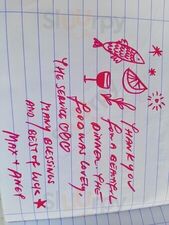 THANK YOU
FOR A BEATIFUL
DINNER. THE
FOOD WAS LOVELY,
THE SERVICE GOOD
MANY BLESSINGS
AND / BEST OF LUCK
MAX +